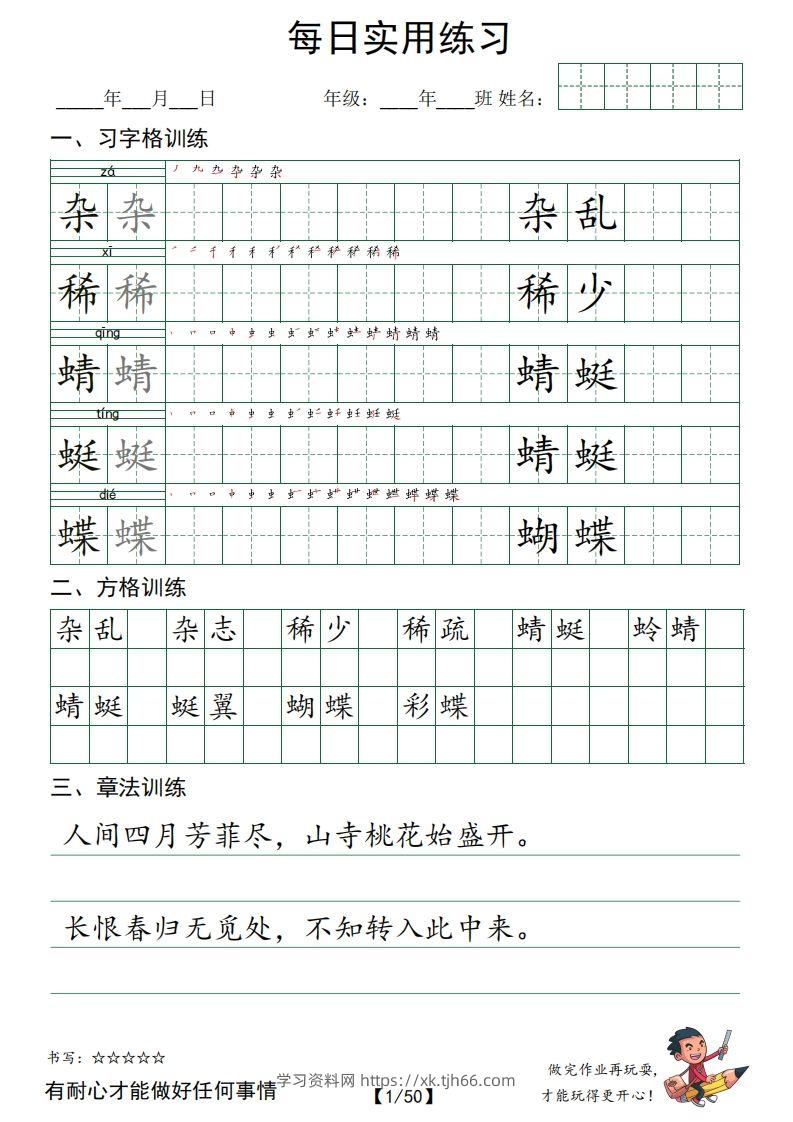 每日实用练习
_____年___月___日 年级：____年____班 姓名：
一、习字格训练
zá
杂 杂 杂 乱
xī
稀 稀 稀 少
qīng
蜻 蜻 蜻 蜓
tíng
蜓 蜓 蜻 蜓
dié
蝶 蝶 蝴 蝶
二、方格训练
杂乱 杂志 稀少 稀疏 蜻蜓 蛉蜻
蜻蜓 蜓翼 蝴蝶 彩蝶
三、章法训练
人间四月芳菲尽，山寺桃花始盛开。
长恨春归无觅处，不知转入此中来。
书写：☆☆☆☆☆
有耐心才能做好任何事情
学习资料网 https://xk.tjh66.com
【1/50】
做完作业再玩耍，
才能玩得更开心！